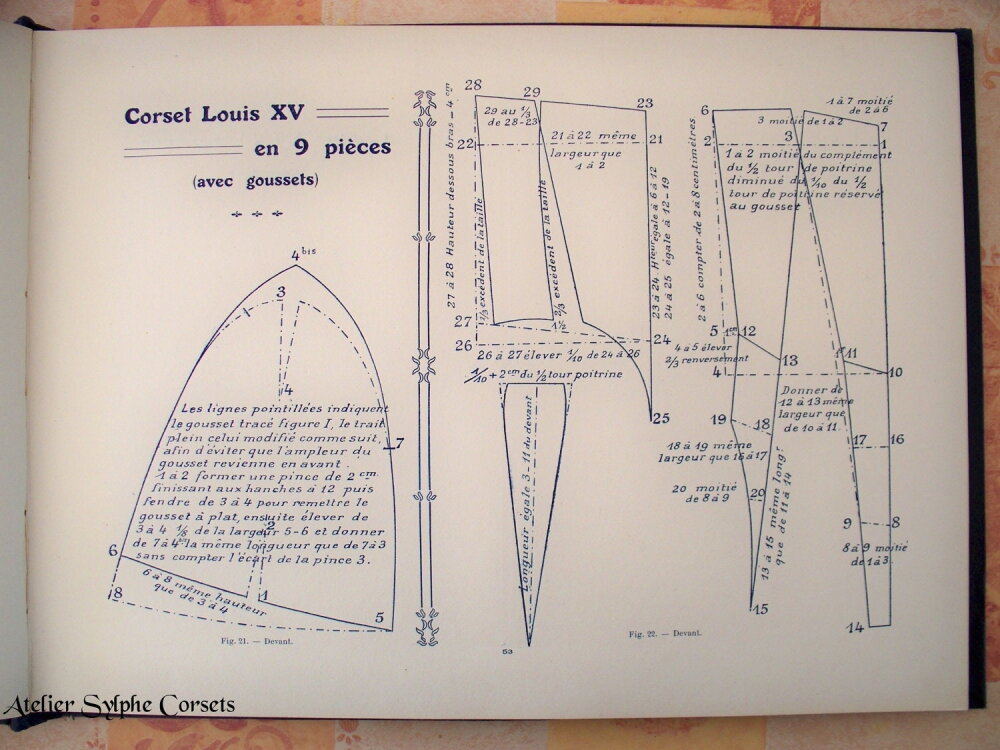 Corset Louis XV
en 9 pièces
(avec goussets)
4 bis
3
4
Les lignes pointillées indiquent
le gousset tracé figure I, le trait
plein celui modifié comme suit,
afin d'éviter que l'ampleur du
gousset revienne en avant.
1 à 2 former une pince de 2 cm
finissant aux hanches à 12 puis
fendre de 3 à 4 pour remettre le
gousset à plat, ensuite élever de
3 à 4 1/8 de la largeur 5-6 et donner
de 7 à 4 bis la même longueur que de 7 à 3
sans compter l'écart de la pince 3.
7
2
6
6 à 8 même hauteur
que de 3 à 4
8
1
5
Fig. 21. — Devant.
28
29
23
29 au 1/3
de 28-23
21 à 22 même
largeur que
1 à 2
22
21
27 à 28 Hauteur dessous bras - 4 cm
1/3 excédent de la taille
2/3 excédent de la taille
23 à 24 Hteur égale à 6 à 12
24 à 25 égale à 12-19
27
1 1/2
26
24
26 à 27 élever 1/10 de 24 à 26
1/10 + 2 cm du 1/2 tour poitrine
25
Longueur égale 3-11 du devant
53
6
1 à 7 moitié
de 2 à 6
3 moitié de 1 à 2
3
7
2
1
1 à 2 moitié du complément
du 1/2 tour de poitrine
diminué du 1/10 du 1/2
tour de poitrine réservé
au gousset
2 à 6 compter de 2 à 8 centimètres
5
1 cm
12
4 à 5 élever
2/3 renversement
4
13
11
10
Donner de
12 à 13 même
largeur que
de 10 à 11
19
18
17
16
18 à 19 même
largeur que 16 à 17
20 moitié
de 8 à 9
20
13 à 15 même longr
que de 11 à 14
9
8
8 à 9 moitié
de 1 à 3
15
14
Fig. 22. — Devant.
Atelier Sylphe Corsets